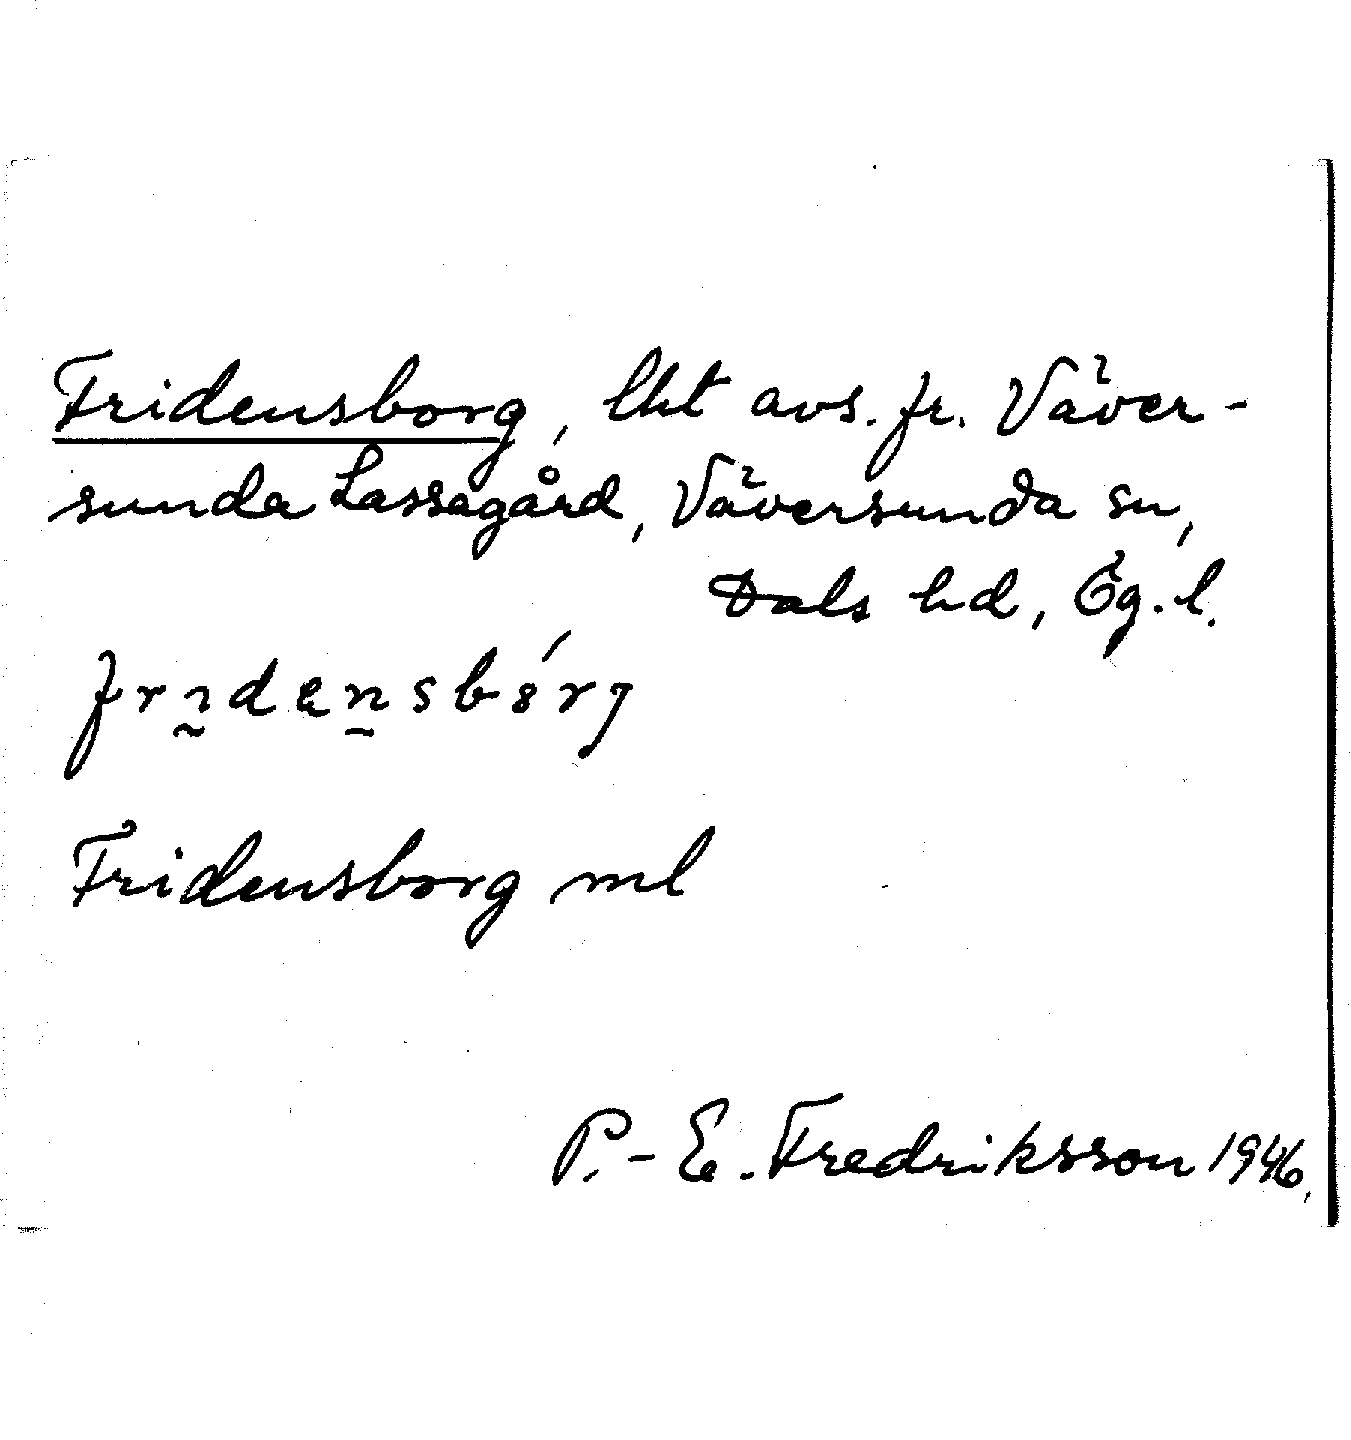 Fridensborg, lht avs. fr. Väver-
sunda Lassagård, Väversunda sn,
Dals hd, Ög. l.
Fridensborg ml
P.-E. Fredriksson 1946.